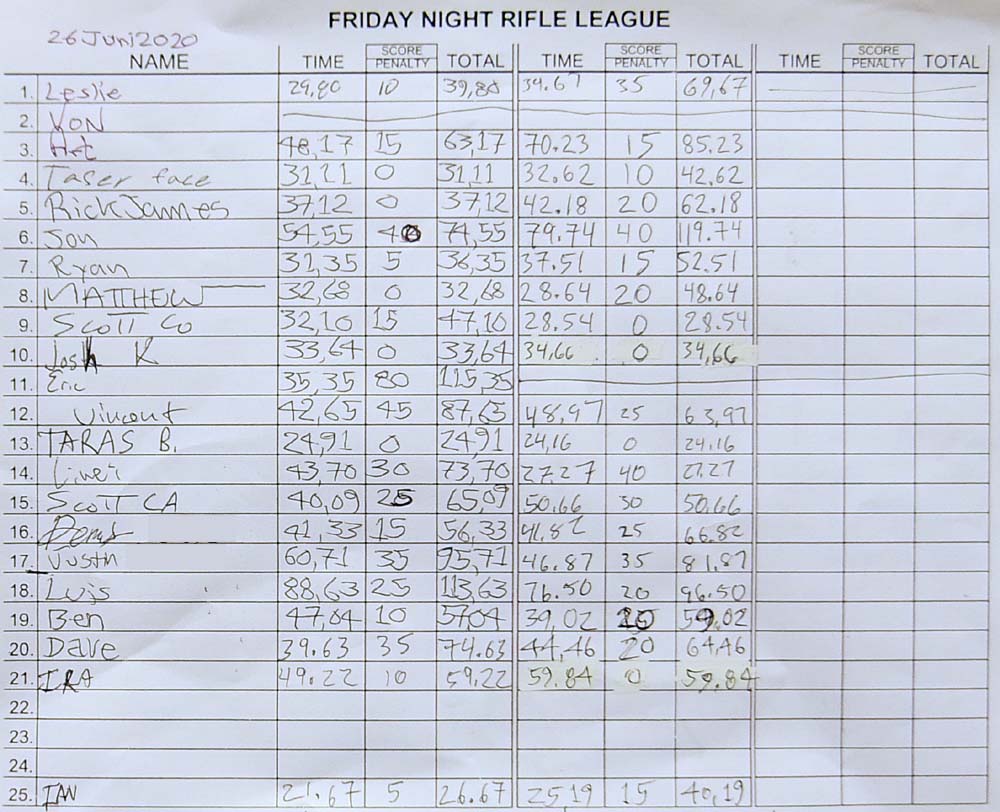 FRIDAY NIGHT RIFLE LEAGUE
26 Juni 2020
NAME TIME SCORE PENALTY TOTAL TIME SCORE PENALTY TOTAL TIME SCORE PENALTY TOTAL
1. Leslie 29,80 10 39,80 34.67 35 69,67
2. KON
3. 48,17 15 63,17 70.23 15 85.23
4. Taser face 31,11 0 31,11 32.62 10 42.62
5. Rick James 37,12 0 37,12 42.18 20 62.18
6. Jon 54,55 74,55 79.74 40 119.74
7. Ryan 31,35 5 36,35 37.51 15 52.51
8. MATTHEW 32,68 0 32,68 28.64 20 48.64
9. Scott Co 32,10 15 47,10 28.54 0 28.54
10. Josh K 33,64 0 33,64 34,66 0 34,66
11. Eric 35,35 80 115,35
12. Vincent 42,65 45 87,65 48,97 25 63,97
13. TARAS B. 24,91 0 24,91 24,16 0 24.16
14. 43,70 30 73,70 27.27 40 27.27
15. Scott CA 40,09 25 65,09 50,66 30 50,66
16. 41,33 15 56,33 41,82 25 66.82
17. Justin 60,71 35 95,71 46.87 35 81,87
18. Luis 88,63 25 113,63 76.50 20 96.50
19. Ben 47,04 10 57,04 39,02 20 59,02
20. Dave 39.63 35 74.63 44,46 20 64,46
21. IRA 49.22 10 59.22 59.84 0 59.84
22.
23.
24.
25. IAN 21.67 5 26.67 25,19 15 40,19